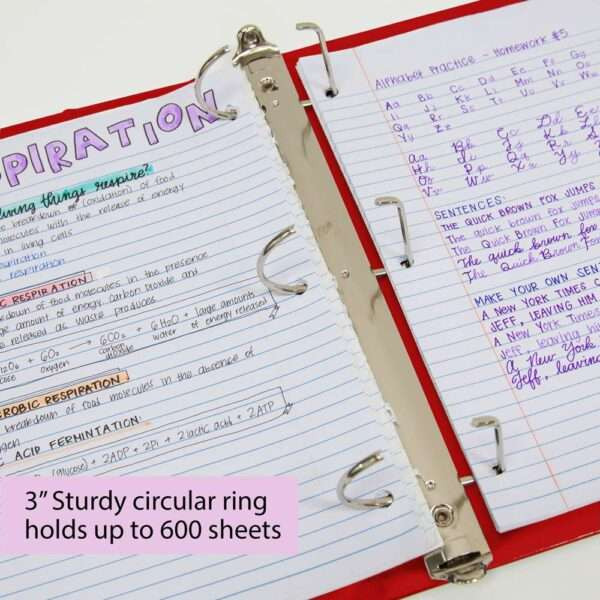 PIRATION
living things respire?
breakdown of (oxidation) of food
molecules with the release of energy
in living cells
respiration
respiration
RESPIRATION
breakdown of food molecules in the presence
large amount of energy. Carbon dioxide and
released as waste products
+ 6O₂ → 6CO₂ + 6H₂O + large amounts
oxygen carbon dioxide water of energy released)
AEROBIC RESPIRATION
breakdown of food molecules in the absence of
oxygen
ACID FERMINTATION:
(glucose) + 2ADP + 2Pi → 2 lactic acid + 2ATP
3” Sturdy circular ring
holds up to 600 sheets
Alphabet Practice - Homework #5
Aa Bb Cc Dd Ee Ff Gg
Ii Jj Kk Ll Mm Nn Oo
Qq Rr Ss Tt Uu Vv
Yy Zz
Aa Bb Cc Dd Ee
Hh Ii Jj Kk Ll
Oo Pp Qq Rr Ss
Vv Ww Xx Yy
SENTENCES:
THE QUICK BROWN FOX JUMPS
The quick brown fox jumps
The Quick Brown Fox
The quick brown fox
The Quick Brown Fox
MAKE YOUR OWN SENT
A NEW YORK TIMES
JEFF, LEAVING HIM
A New York Times
Jeff, leaving him
A New York
Jeff, leaving